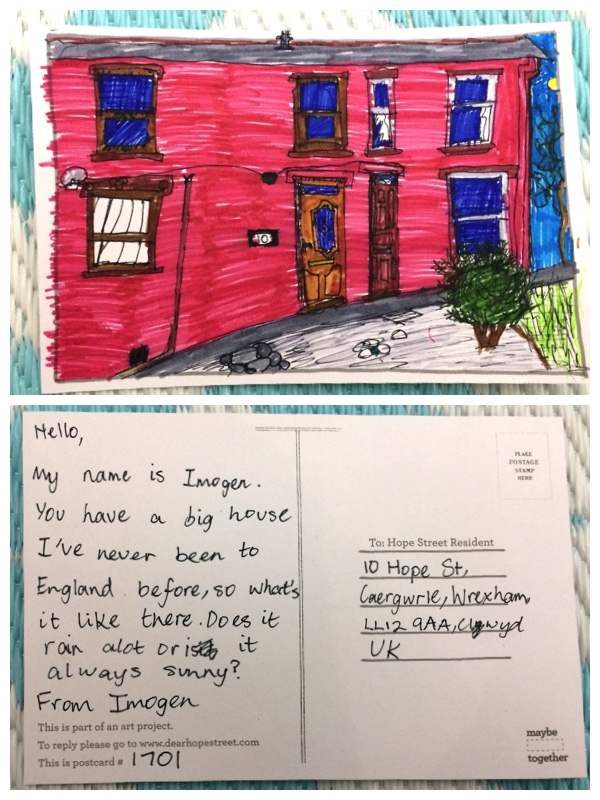 10
Hello,
My name is Imogen.
You have a big house
I've never been to
England before, so what's
it like there. Does it
rain alot or is it
always sunny?
From Imogen
This is part of an art project.
To reply please go to www.dearhopestreet.com
This is postcard # 1701
PLACE
POSTAGE
STAMP
HERE
To: Hope Street Resident
10 Hope St,
Caergwrle, Wrexham,
LL12 9AA, Clwyd
UK
maybe
together